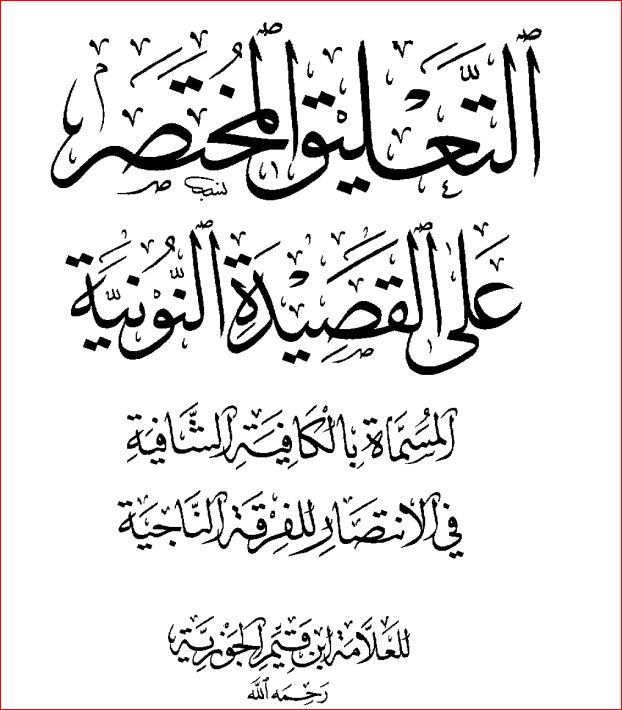 التَّعْلِيقُ المُخْتَصَرُ
عَلَى القَصِيْدَةِ النُّونِيَّةِ
المُسَمَّاةِ بِالْكَافِيَةِ الشَّافِيَةِ
فِي الِانْتِصَارِ لِلْفِرْقَةِ النَّاجِيَةِ
لِلعَلَّامَةِ ابْنِ قَيِّمِ الجَوْزِيَّةِ
رَحِمَهُ اللَّه